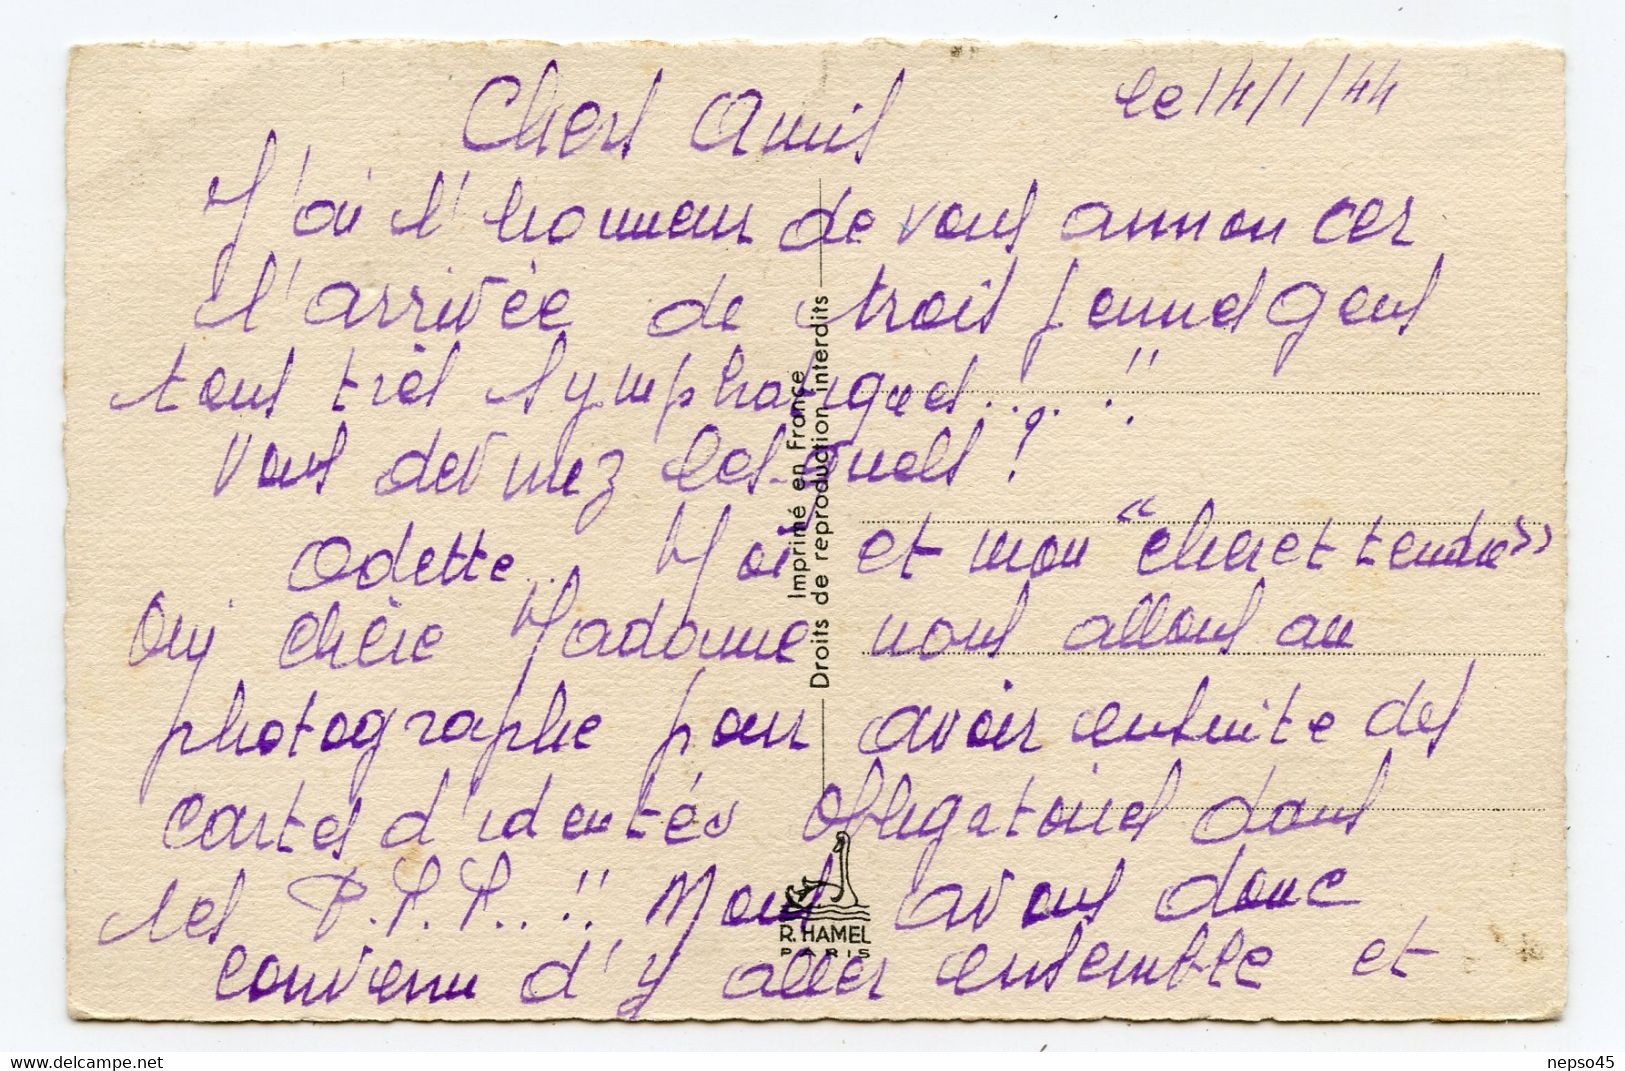 le 14/1/44
Chers Amis
J'ai l'honneur de vous annoncer
l'arrivée de trois jeunes gens
tous très symphatiques.... !!
Vous devinez les-quels ?
Odette.. Moi et mon "cher et tendre"
Oui chère Madame nous allons au
photographe pour avoir ensuite des
cartes d'identés obligatoires dans
les P.T.T.. !! Nous avons donc
convenu d'y aller ensemble et
Imprimé en France
Droits de reproduction interdits
R. HAMEL
PARIS
nepso45
www.delcampe.net